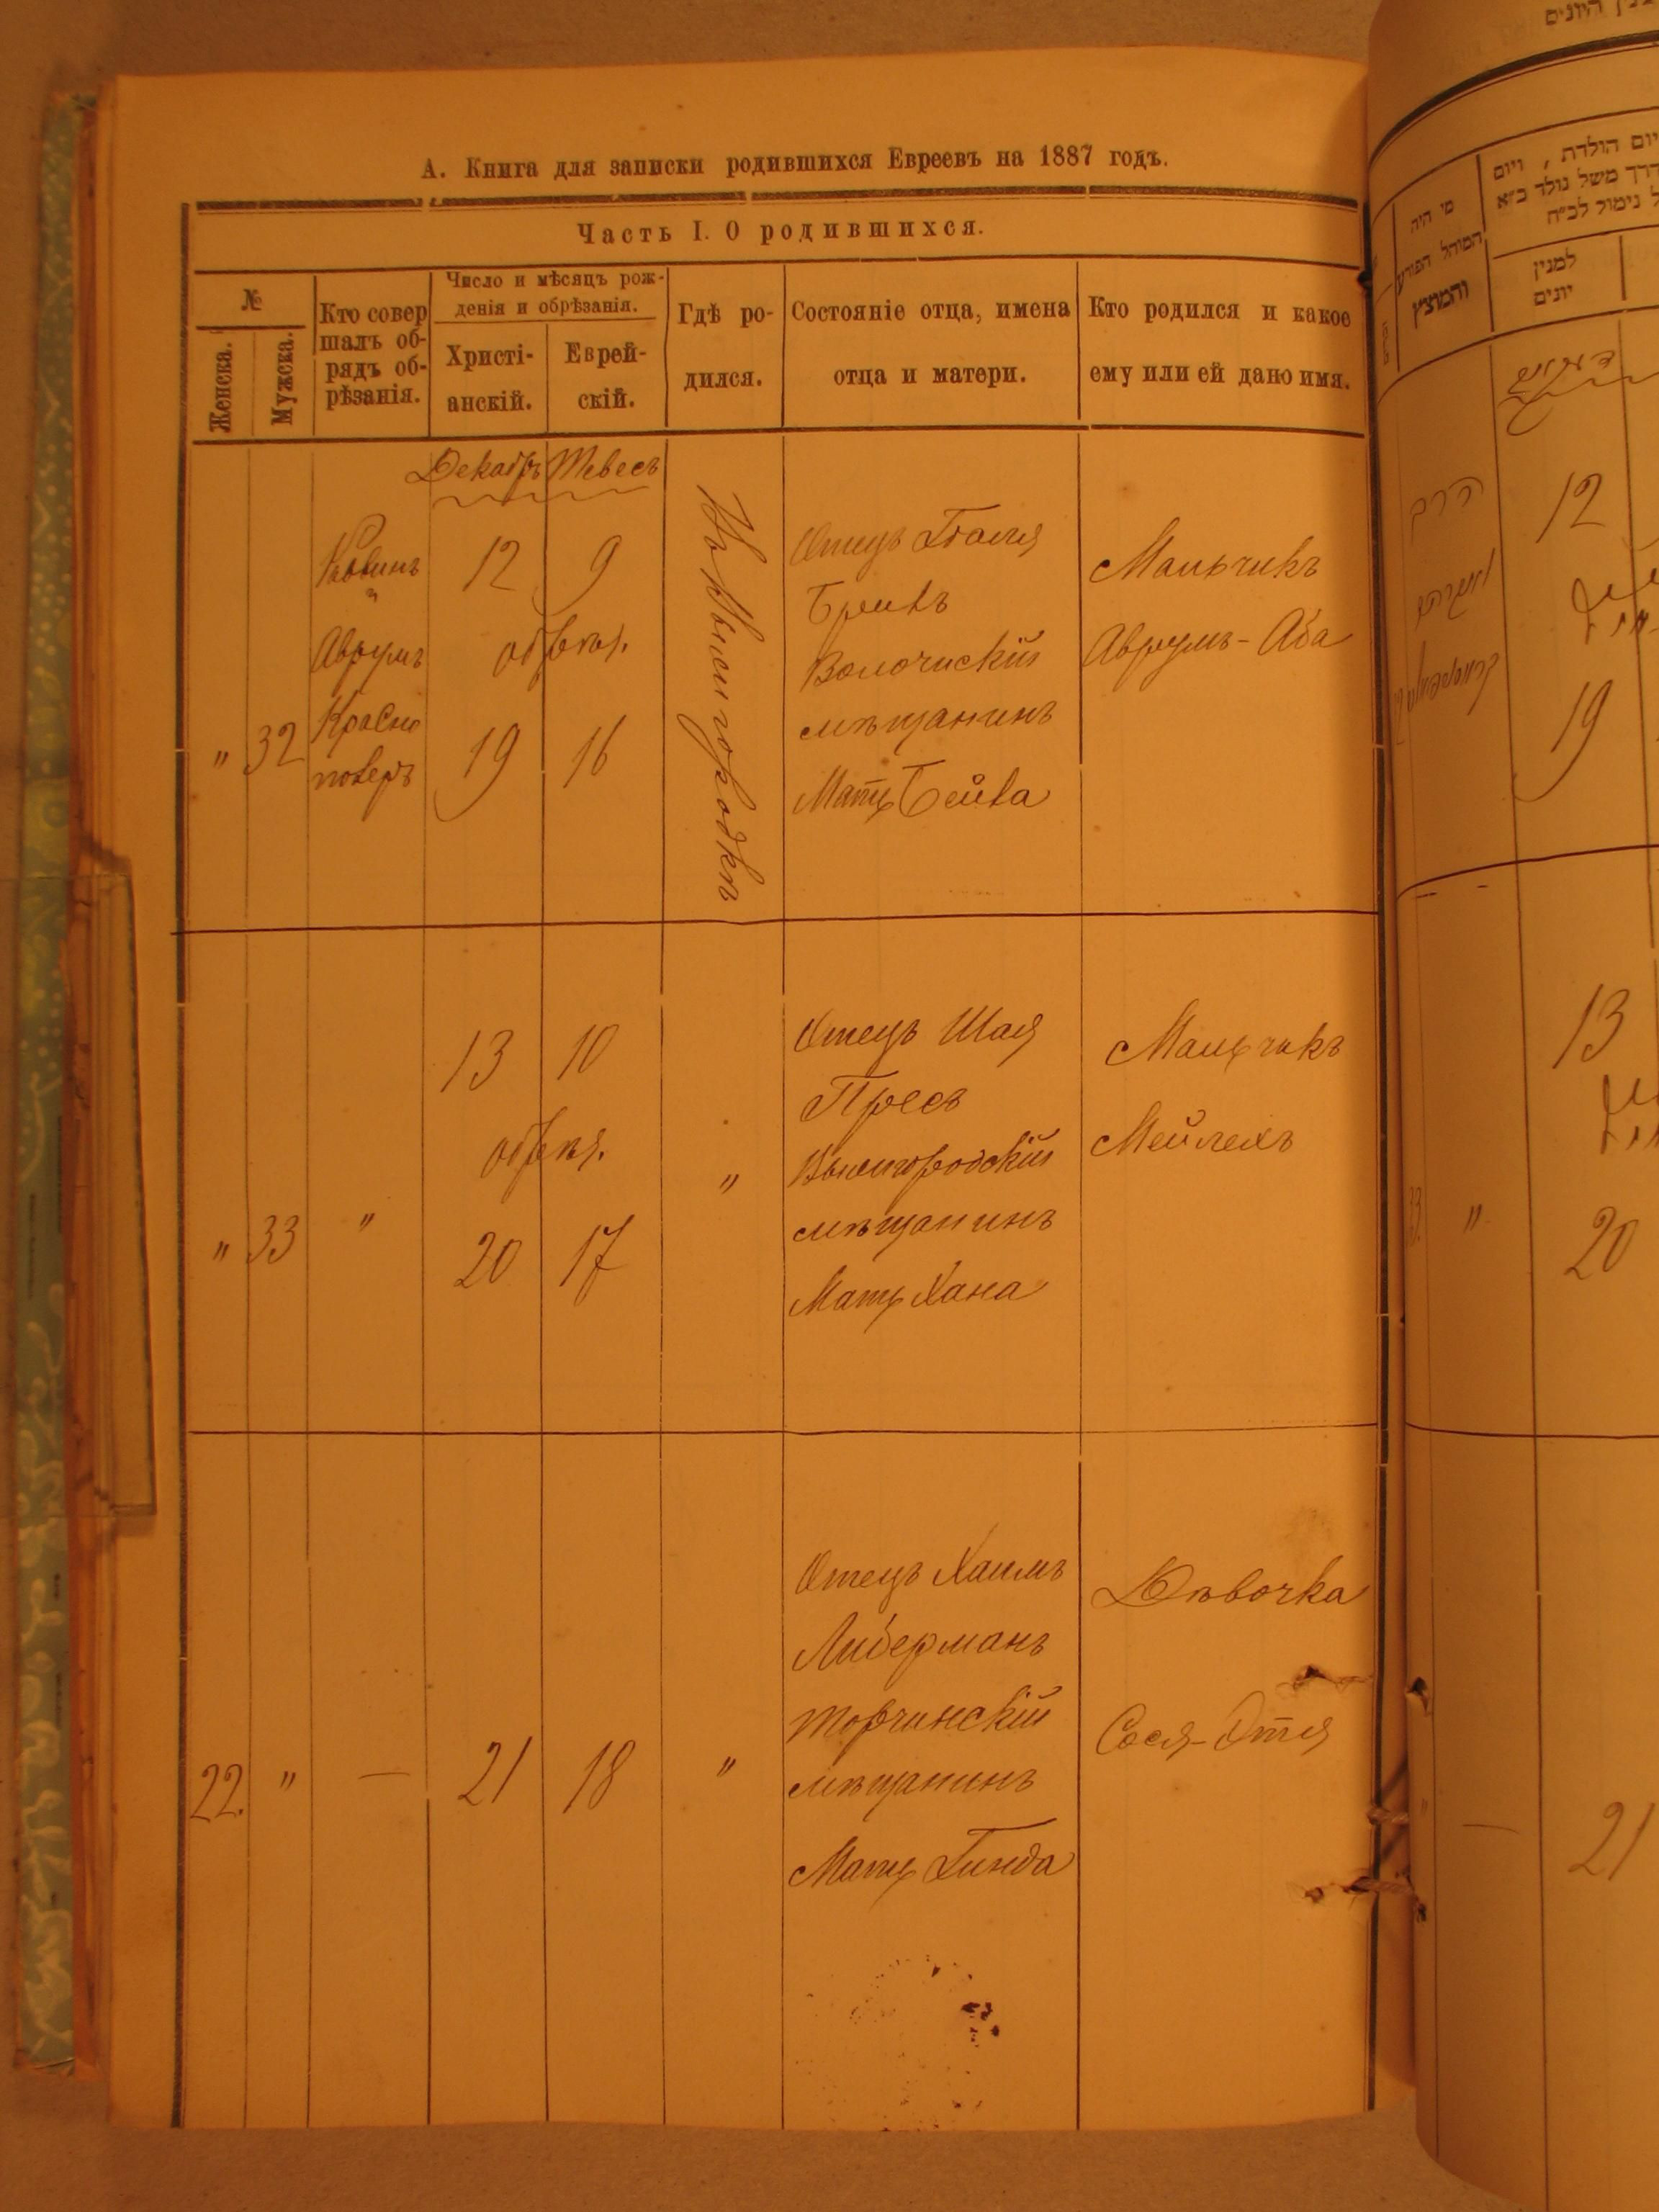 А. Книга для записки родившихся Евреевъ на 1887 годъ.
Часть I. О родившихся.
№
Женска.
Мужска.
Кто совер
шалъ об-
рядъ об-
рѣзанія.
Число и мѣсяцъ рож-
денія и обрѣзанія.
Христі-
анскій.
Еврей-
скій.
Гдѣ ро-
дился.
Состояніе отца, имена
отца и матери.
Кто родился и какое
ему или ей дано имя.
Декабрь Тевесъ
" 32
Раввинъ
Аврумъ
Красно
12 9
обрѣзн.
19 16
Отецъ
Волочискій
мѣщанинъ
Мать Бейла
Мальчикъ
Аврумъ-Аба
" 33
"
13 10
обрѣзн.
20 17
"
Отецъ Шая
Пресъ
Вышгородскій
мѣщанинъ
Мать Хана
Мальчикъ
Мейлехъ
22. "
—
21 18
"
Отецъ Хаимъ
Либерманъ
Торчинскій
мѣщанинъ
Мать Гинда
Дѣвочка
Сося-Этя
מי היה
המוהל הפורע
והמוצץ
יום הולדת , ויום
למנין
יונים
12
19
33.
"
13
20
—
21